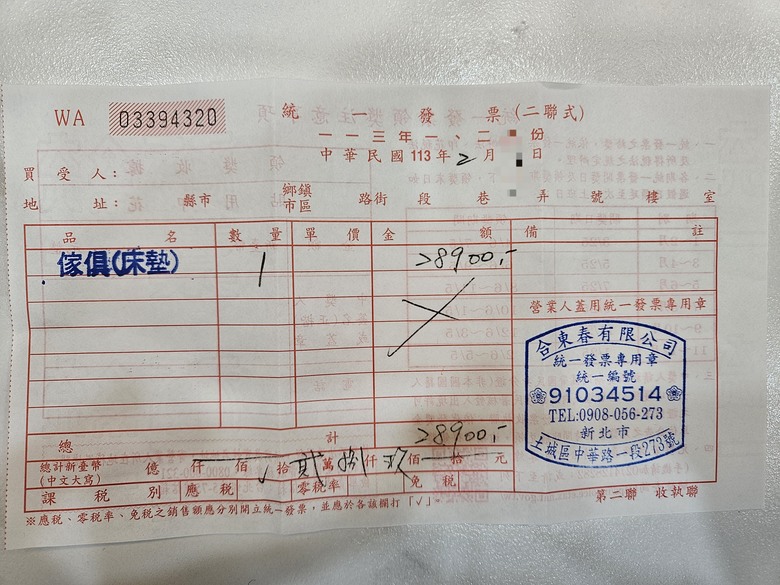 WA 03394320 統一發票(二聯式)
一一三年一、二 份
中華民國113年2月 日
買受人：
地址： 縣市 鄉鎮市區 路街 段 巷 弄 號 樓 室
品名 數量 單價 金額 備註
傢俱(床墊) 1 28900,-
營業人蓋用統一發票專用章
合東春有限公司
統一發票專用章
統一編號
91034514
TEL:0908-056-273
新北市
土城區中華路一段273號
總計 28900,-
總計新臺幣(中文大寫) 億 仟 佰 拾 貳萬 捌仟 玖佰 拾 元
課稅別 應稅 零稅率 免稅
第二聯 收執聯
※應稅、零稅率、免稅之銷售額應分別開立統一發票，並應於各該欄打「√」。